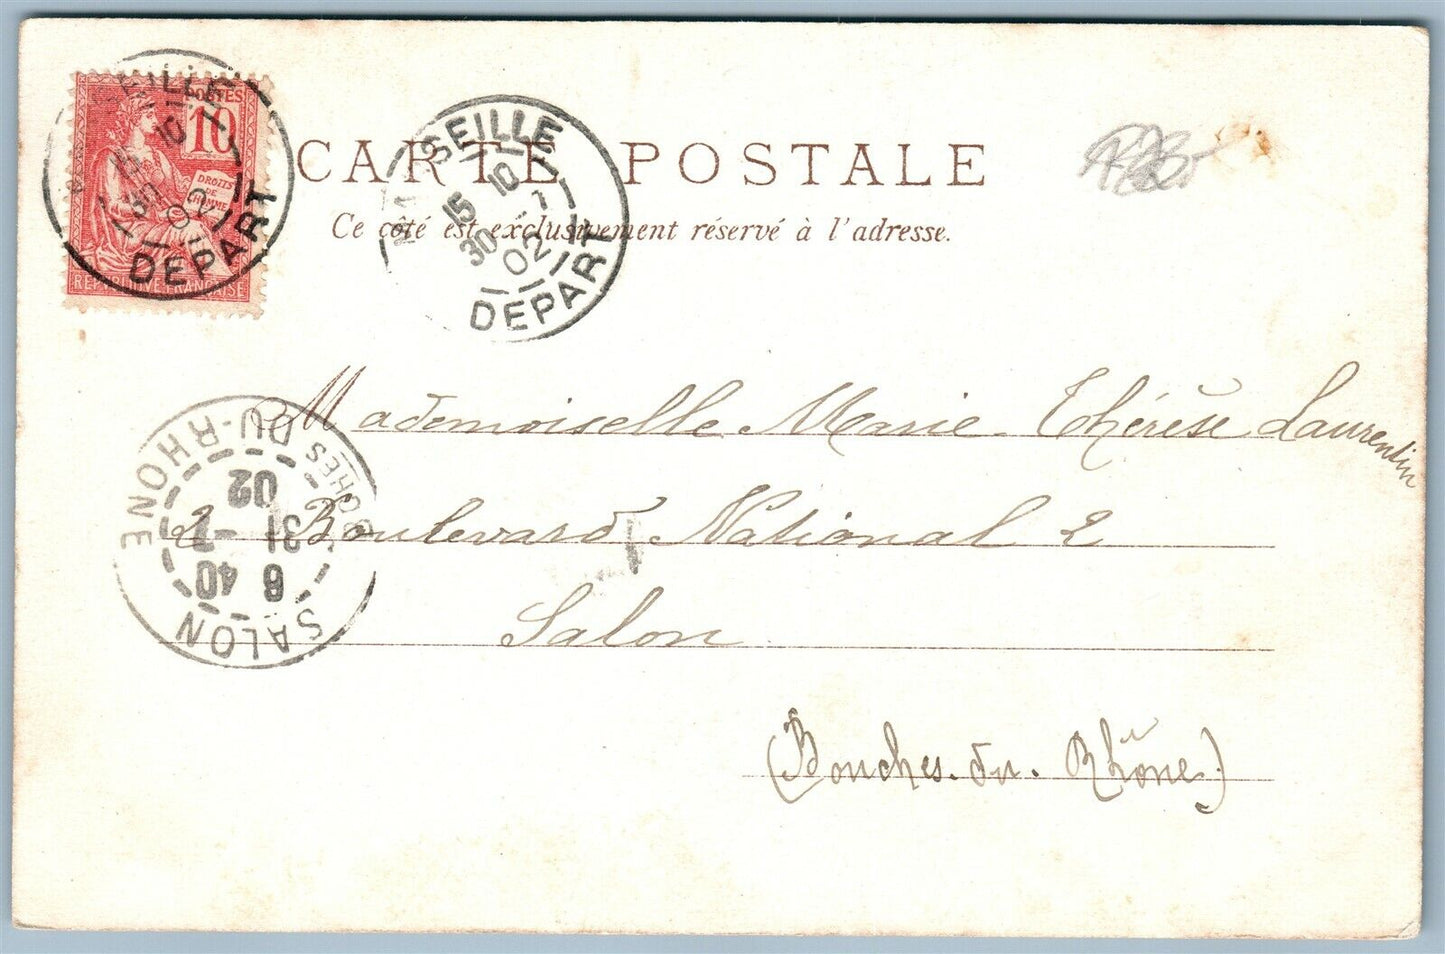 POSTES
10
DROITS
DE
L'HOMME
REPUBLIQUE FRANÇAISE
MARSEILLE
15 10
30 -1
02
DEPART
MARSEILLE
15 10
30 -1
02
DEPART
CARTE POSTALE
Ce côté est exclusivement réservé à l'adresse.
Mademoiselle Marie Thérèse Laurentin
2 Boulevard National 2
Salon
(Bouches-du-Rhône)
SALON
6 40
31 -1
02
BOUCHES DU-RHONE